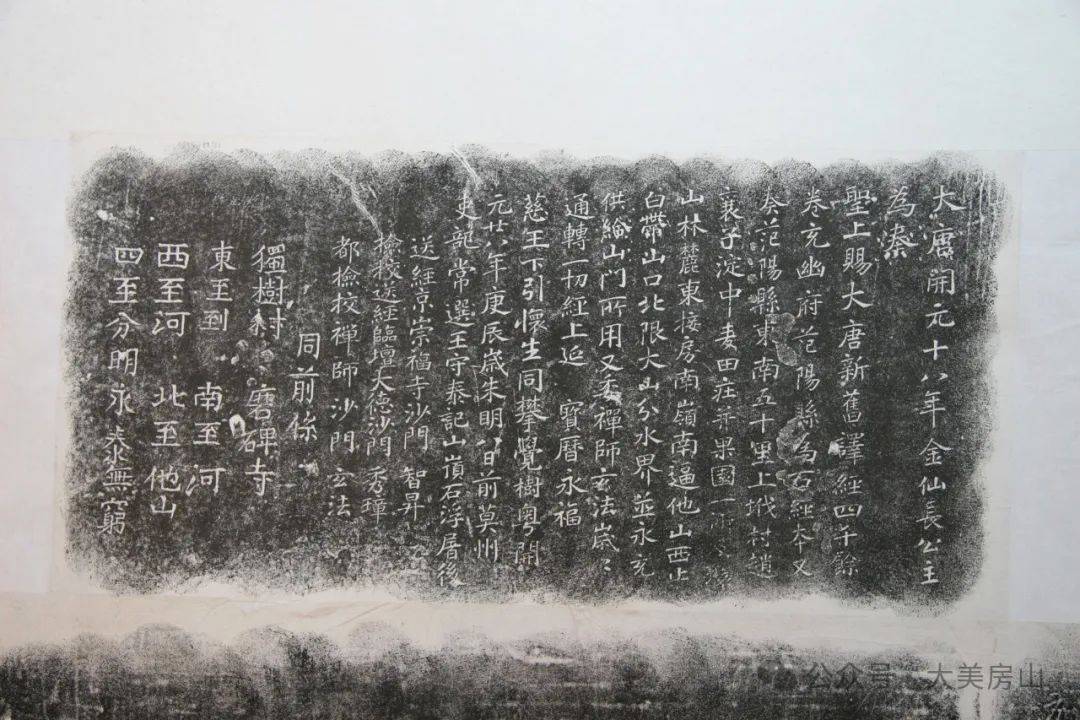 大唐開元十八年金仙長公主
為奏
聖上賜大唐新舊譯經四千餘
卷充幽府范陽縣為石經本又
奏范陽縣東南五十里上垡村趙
襄子淀中麦田庄并果園一所
山林麓東接房南嶺南逼他山西止
白帶山口北限大山分水界並永充
供給山門所用又委禪師玄法歲々
通轉一切經上延 寶曆永福
慈王下引懷生同攀覺樹粤開
元廿八年庚辰歲朱明八日前莫州
吏部常選王守泰記山頂石浮屠後
送經京崇福寺沙門 智昇
檢校送經臨壇大德沙門 秀璋
都檢校禪師沙門 玄法
同前係
獨樹村 磨碑寺
東至到 南至河
西至河 北至他山
四至分明永泰無窮
公众号 大美房山